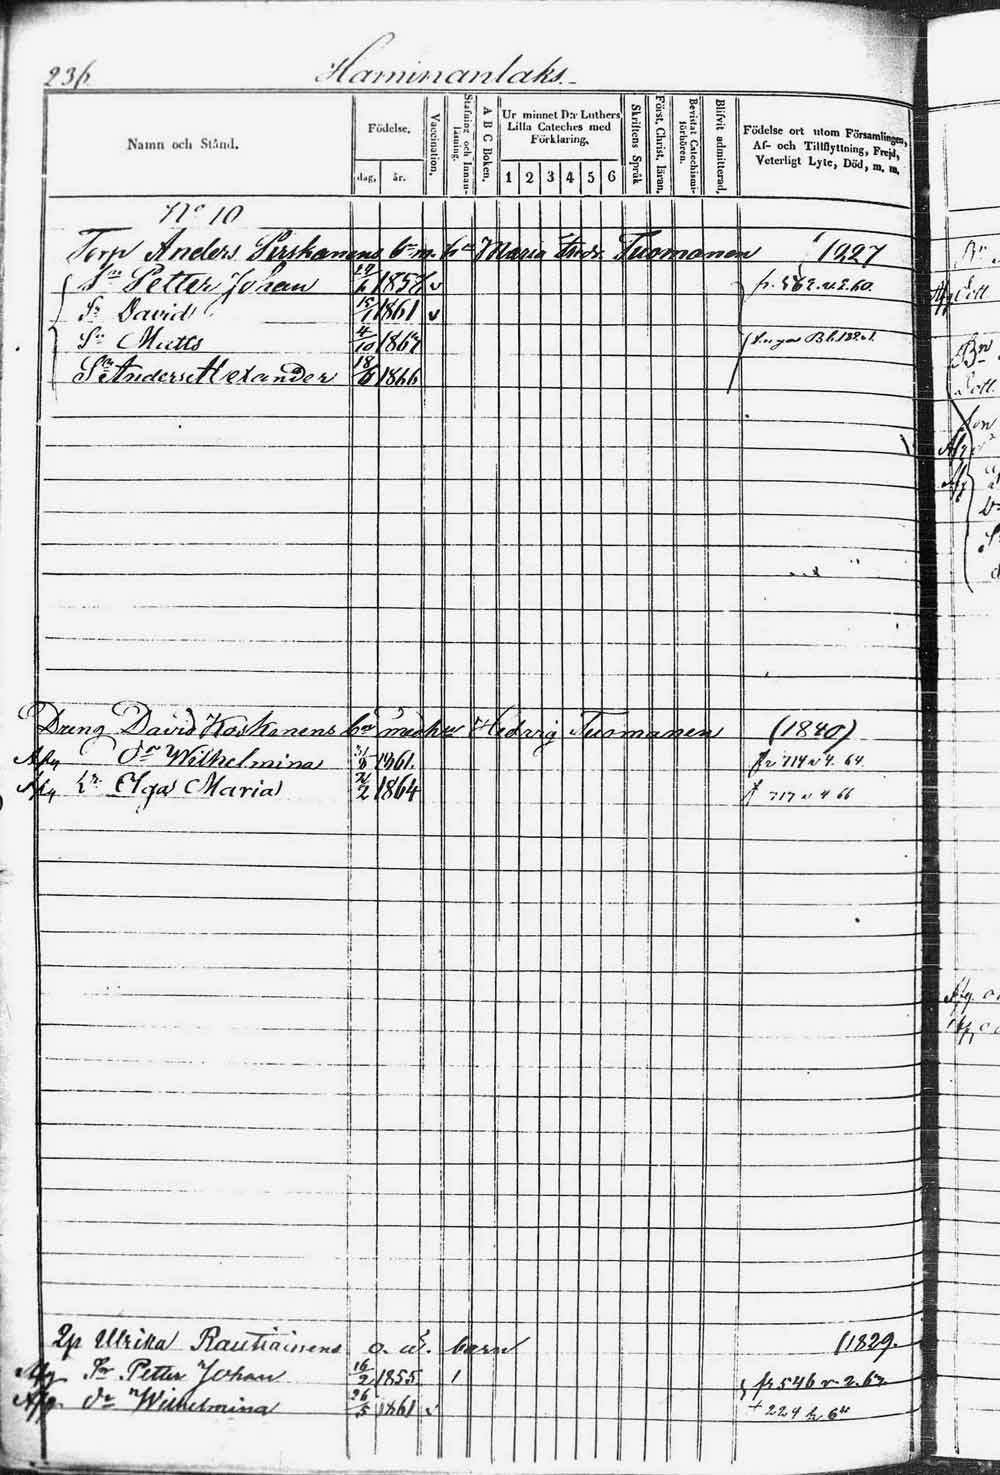 236.
Haminanlaks.
Namn och Stånd.
Födelse.
dag. år.
Vaccination.
Stafning och Innan-läsning.
A B C Boken.
Ur minnet D:r Luthers Lilla Cateches med Förklaring.
1 2 3 4 5 6
Skriftens Språk
Först. Christ. läran.
Bevistat Catechismi-förhören.
Blifvit admitterad.
Födelse ort utom Församlingen, Af- och Tillflyttning, Frejd, Veterligt Lyte, Död, m. m.
No 10
Torp Anders Pirskanens bn m. hu Maria Andr. Tuomanen 1827
Sn Petter Johan 1857 v fr. 562. v. 2. 60.
Sn David 15/1 1861 v
Sn Matts 4/10 1867
Sn Anders Alexander 18/6 1866
Dreng David Koskanens bn med hu Hedvig Tuomanen (1840)
Afg Dr Wilhelmina 1861. 714 v 4. 64.
Afg Dr Olga Maria 2/2 1864 717 v 4 66
Ip Ulrika Rautiainens o. ä. barn (1829.
Afg Sn Petter Johan 16/2 1855 fr 546 v. 2.
Afg. Dr Wilhelmina 26/5 1861 v + 224 h 64